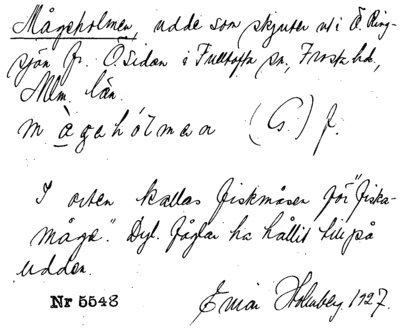 Mågeholmen, udde som skjuter ut i Ö. Ring-
sjön fr. Ö. sidan i Fulltofta sn, Frosta hd,
Mlm. län.
m à g a h ó l m e n (G.) f.
I orten kallas fiskmåsen för "fiska-
måge". Dyl. fåglar ha hållit till på
udden.
Nr 5548
Holmberg 1927.